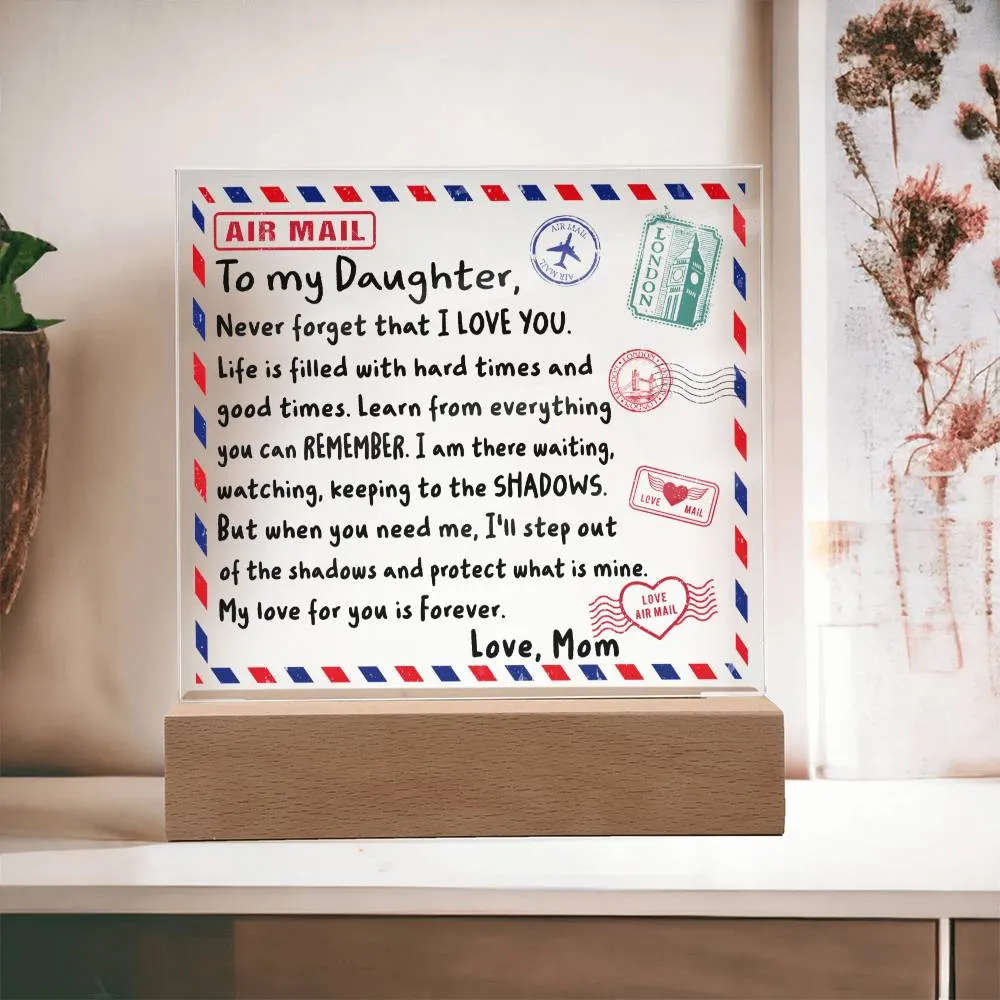 AIR MAIL
AIR MAIL
AIR MAIL
LONDON
To my Daughter,
Never forget that I LOVE YOU.
Life is filled with hard times and
good times. Learn from everything
you can REMEMBER. I am there waiting,
watching, keeping to the SHADOWS.
LOVE MAIL
But when you need me, I'll step out
of the shadows and protect what is mine.
LOVE
AIR MAIL
My love for you is Forever.
Love, Mom